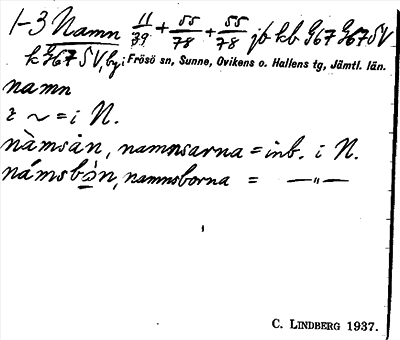 1-3 Namn 11/39 + 55/78 + 55/78 jb kb G67 G67 SV
k G67 SV, by i Frösö sn, Sunne, Ovikens o. Hallens tg, Jämtl. län.
namn
i ~ = i N.
nàmsàn, namnsarna = inb. i N.
námsbòn, namnsborna = —„—
C. LINDBERG 1937.